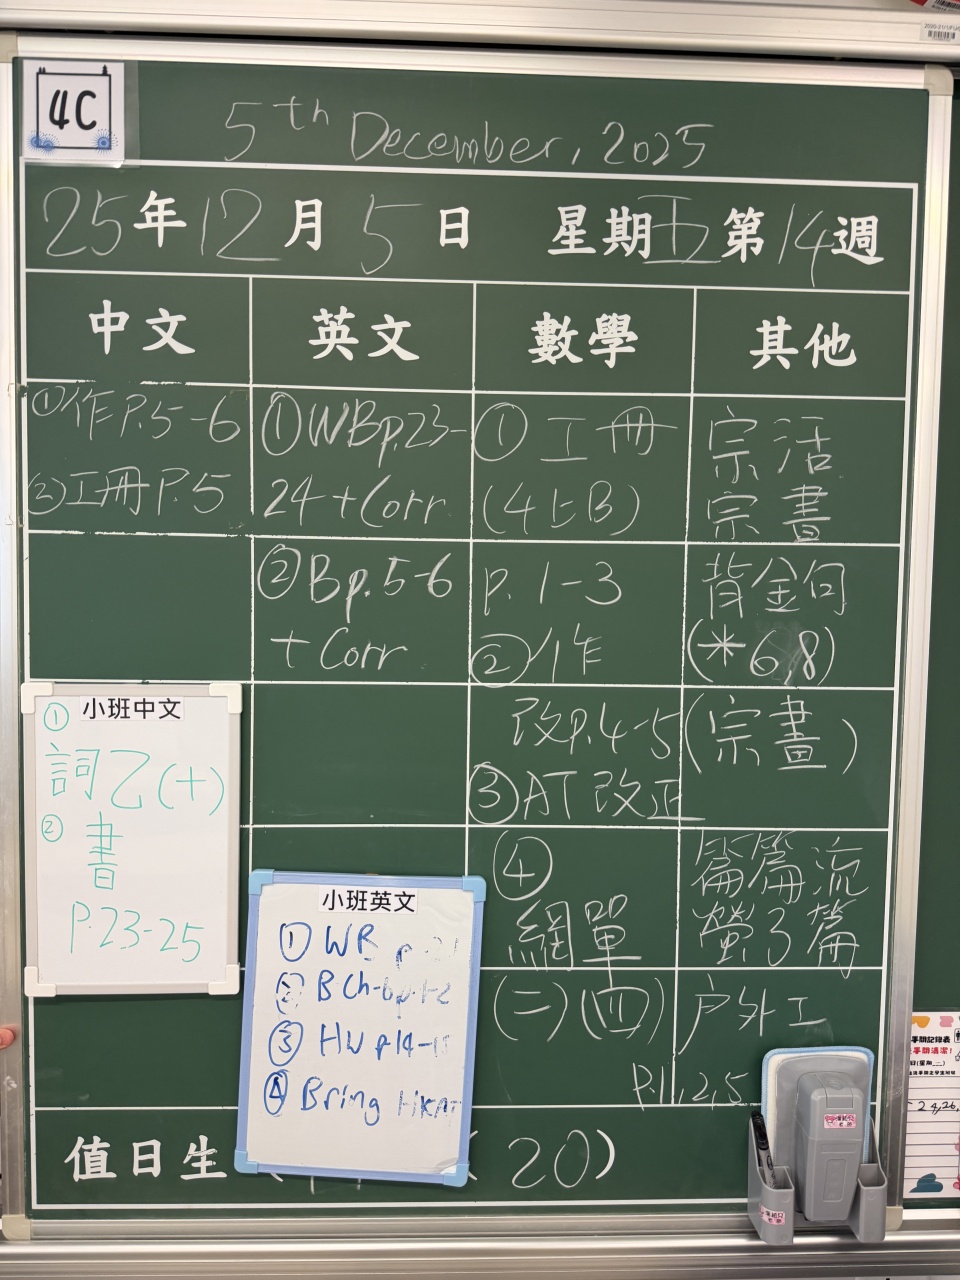 4C
5th December, 2025
25年12月5日 星期五第14週
中文
英文
數學
其他
①作P.5-6
②工冊P.5
①WBp.23-
24+Corr
②Bp.5-6
+Corr
①工冊
(4上B)
p.1-3
②作
改p.4-5
③AT改正
④
網單
(二)(四)
宗活
宗書
背金句
(*6,8)
(宗畫)
篇篇流
螢了篇
户外工
P.11,2,5
小班中文
①
詞乙(十)
②
書
P.23-25
小班英文
① WB
② B Ch-6 p.1-2
③ HW p14-15
④ Bring
值日生
20)